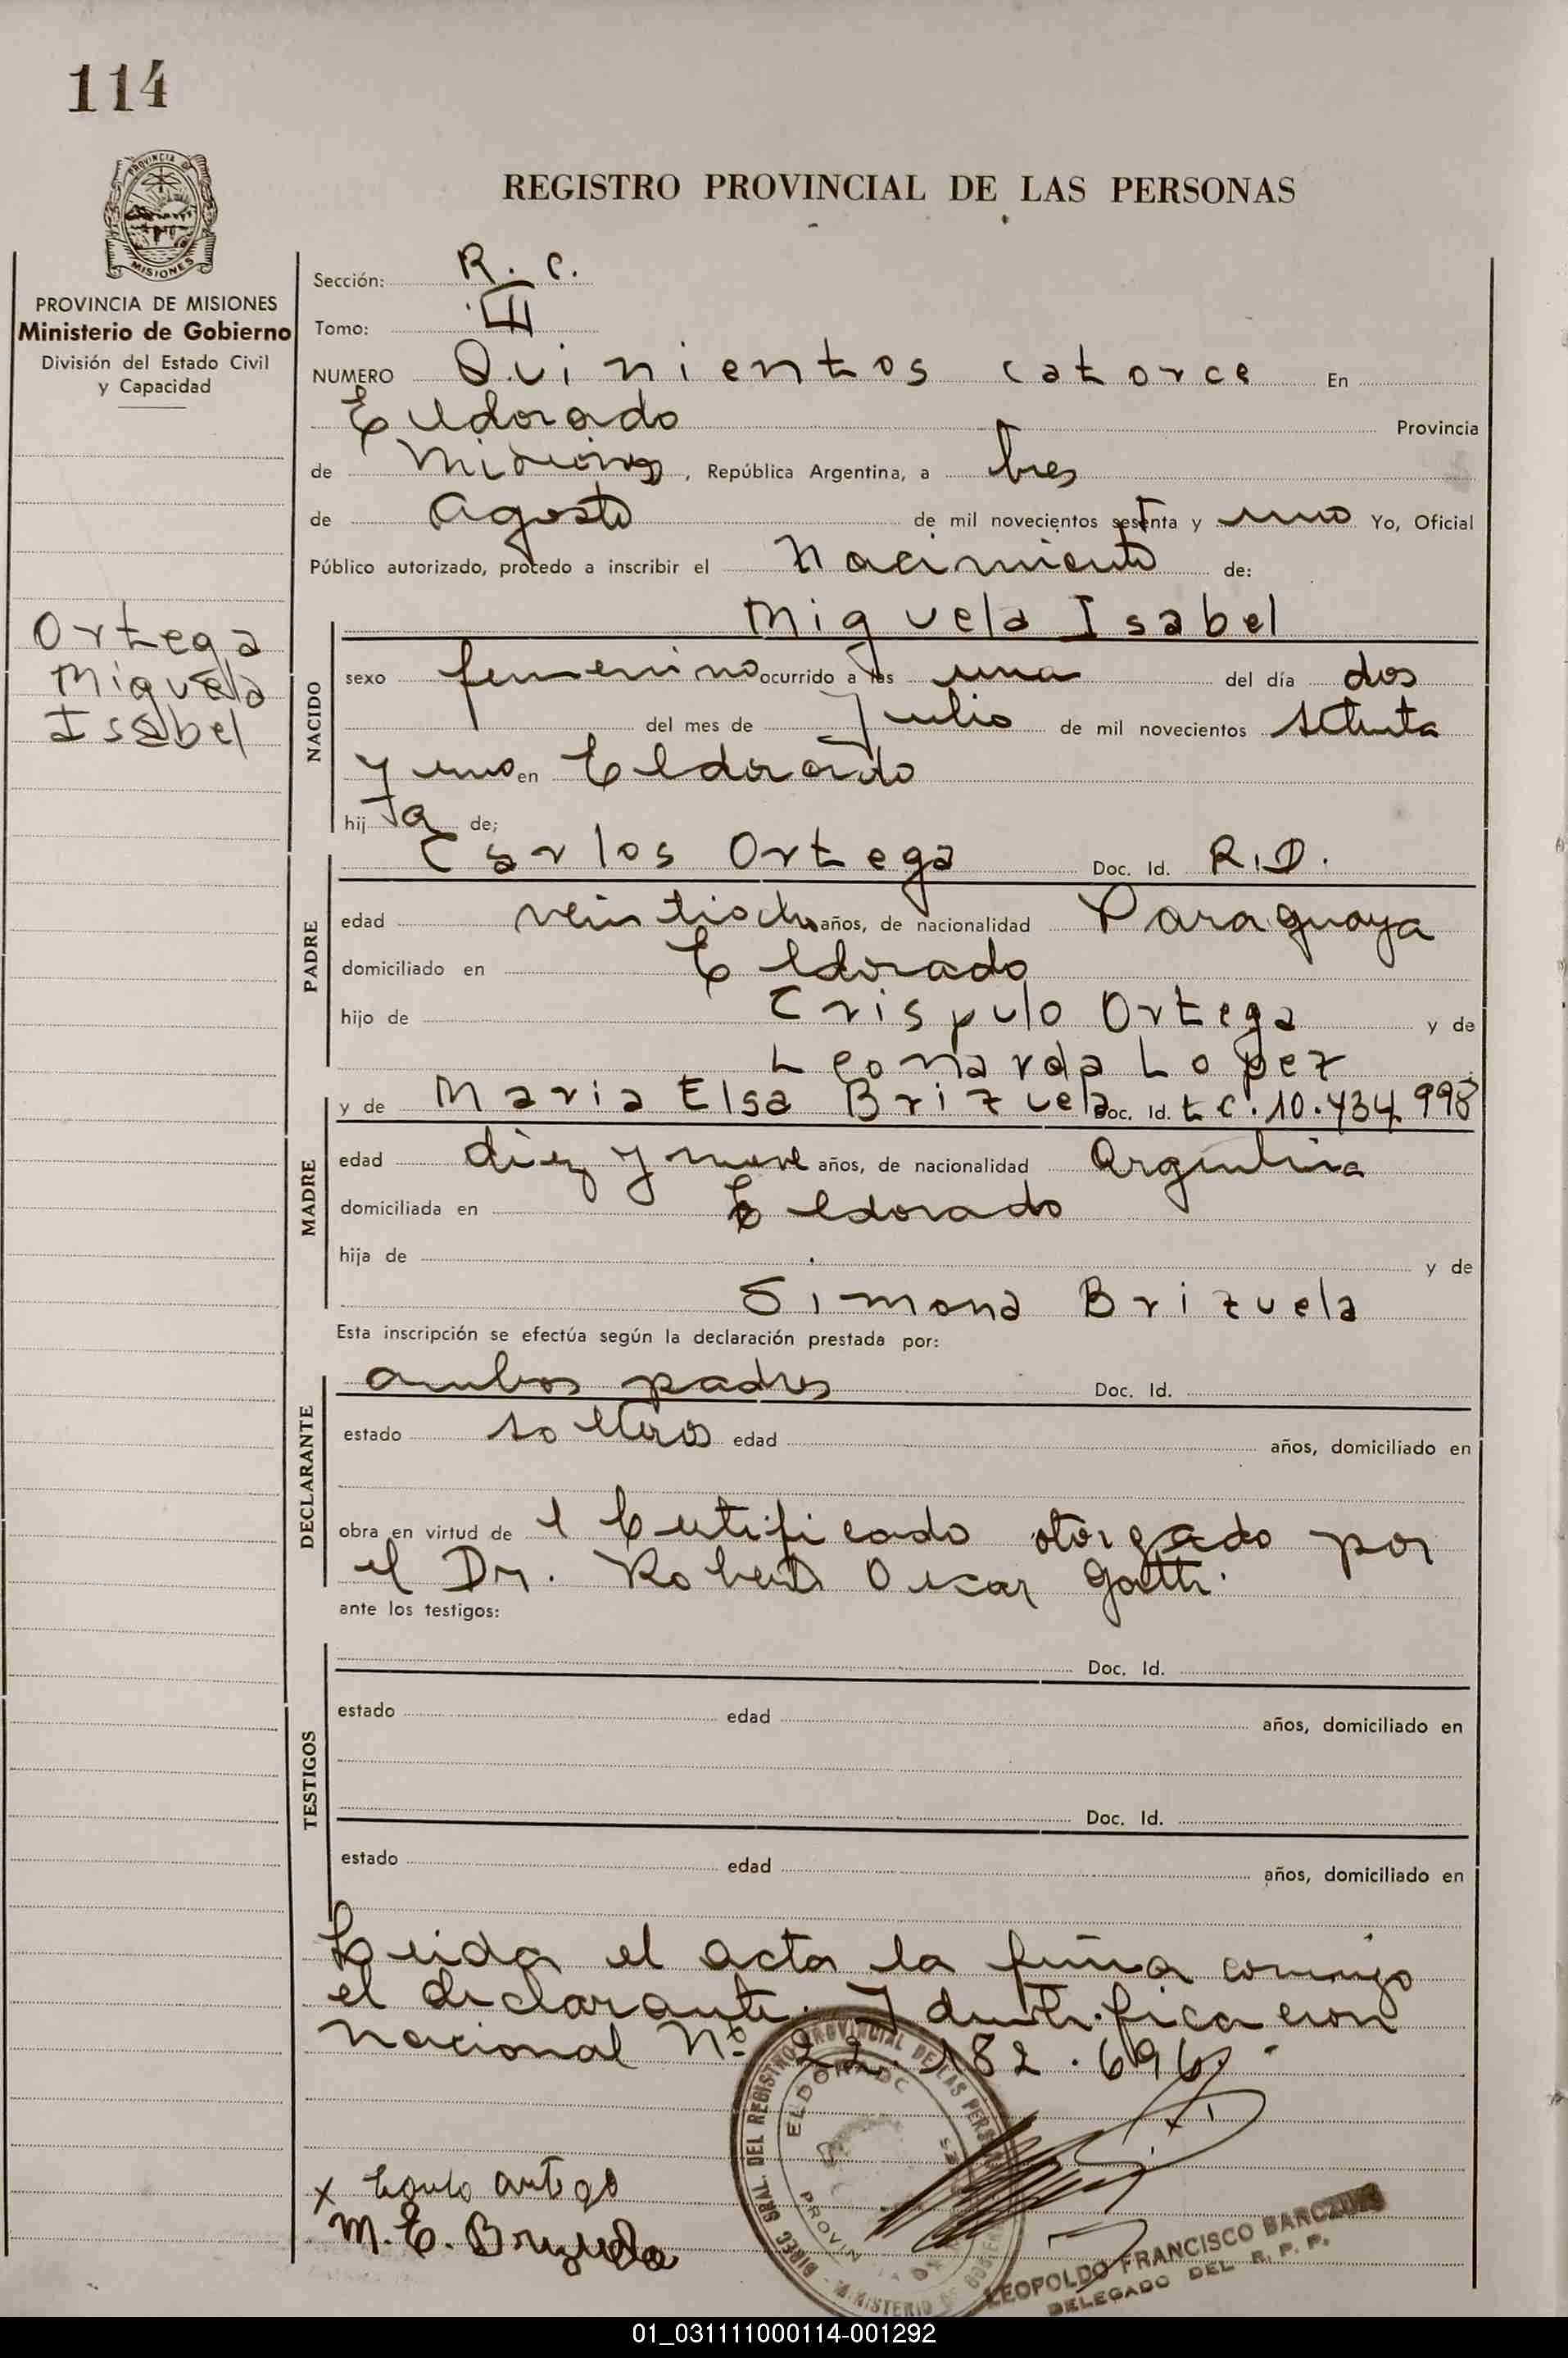 114
PROVINCIA DE
MISIONES
PROVINCIA DE MISIONES
Ministerio de Gobierno
División del Estado Civil
y Capacidad
Ortega
Miguela
Isabel
REGISTRO PROVINCIAL DE LAS PERSONAS
Sección: R. C.
Tomo: III
NUMERO Quinientos catorce En
Eldorado Provincia
de Misiones, República Argentina, a tres
de Agosto de mil novecientos sesenta y uno Yo, Oficial
Público autorizado, procedo a inscribir el Nacimiento de:
NACIDO
Miguela Isabel
sexo femenino ocurrido a las una del día dos
del mes de Julio de mil novecientos setenta
y uno en Eldorado
hij ja de;
PADRE
Carlos Ortega Doc. Id. R.D.
edad veintiocho años, de nacionalidad Paraguaya
domiciliado en Eldorado
hijo de Crispulo Ortega y de
Leonarda Lopez
MADRE
y de Maria Elsa Brizuela Doc. Id. L C. 10.434 998
edad diez y nueve años, de nacionalidad Argentina
domiciliada en Eldorado
hija de y de
Simona Brizuela
Esta inscripción se efectúa según la declaración prestada por:
DECLARANTE
ambos padres Doc. Id.
estado solteros edad años, domiciliado en
obra en virtud de l Certificado otorgado por
el Dr. Roberto Oscar Gatti.
ante los testigos:
TESTIGOS
Doc. Id.
estado edad años, domiciliado en
Doc. Id.
estado edad años, domiciliado en
Leida el acta la firma conmigo
el declarante. Identificacion
Nacional Nº 22.182.696.-
DIREC. GRAL. DEL REGISTRO PROVINCIAL DE LAS PERSONAS
ELDORADO
x Carlo Ortega
M. E. Brizuela
LEOPOLDO FRANCISCO
DELEGADO DEL R. P. P.
01_031111000114-001292